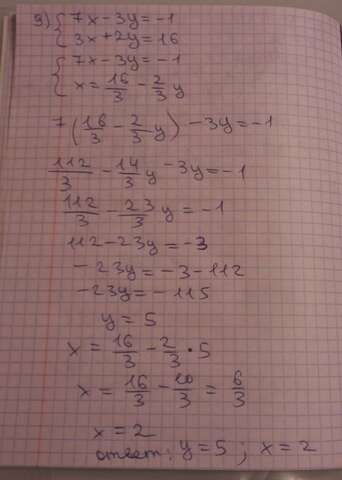 9) { 7x - 3y = -1
3x + 2y = 16
{ 7x - 3y = -1
x = 16/3 - 2/3 y
7 (16/3 - 2/3 y) - 3y = -1
112/3 - 14/3 y - 3y = -1
112/3 - 23/3 y = -1
112 - 23y = -3
- 23y = - 3 - 112
- 23y = - 115
y = 5
x = 16/3 - 2/3 • 5
x = 16/3 - 10/3 = 6/3
x = 2
ответ: y = 5 ; x = 2